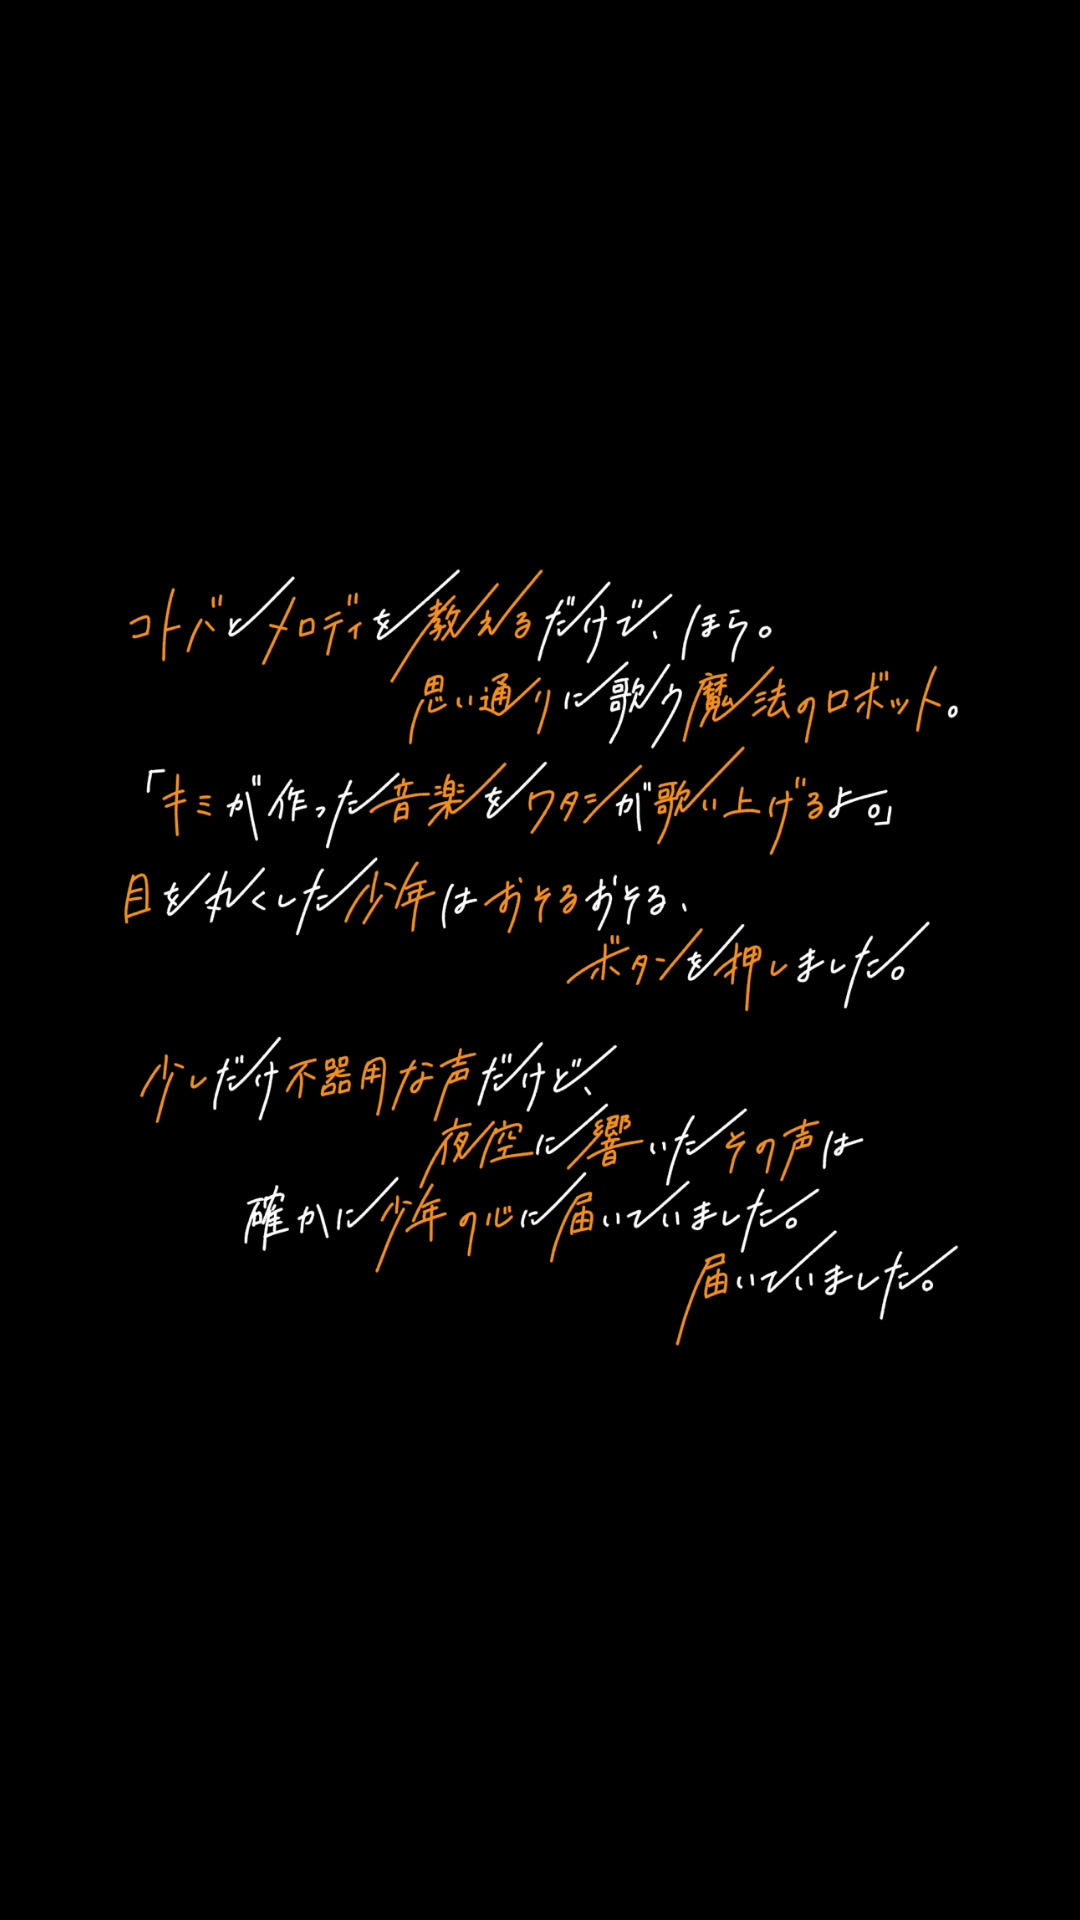 コトバとメロディを教えるだけで、ほら。
思い通りに歌う魔法のロボット。
「キミが作った音楽をワタシが歌い上げるよ。」
目を丸くした少年はおそるおそる、
ボタンを押しました。
少しだけ不器用な声だけど、
夜空に響いたその声は
確かに少年の心に届いていました。
届いていました。